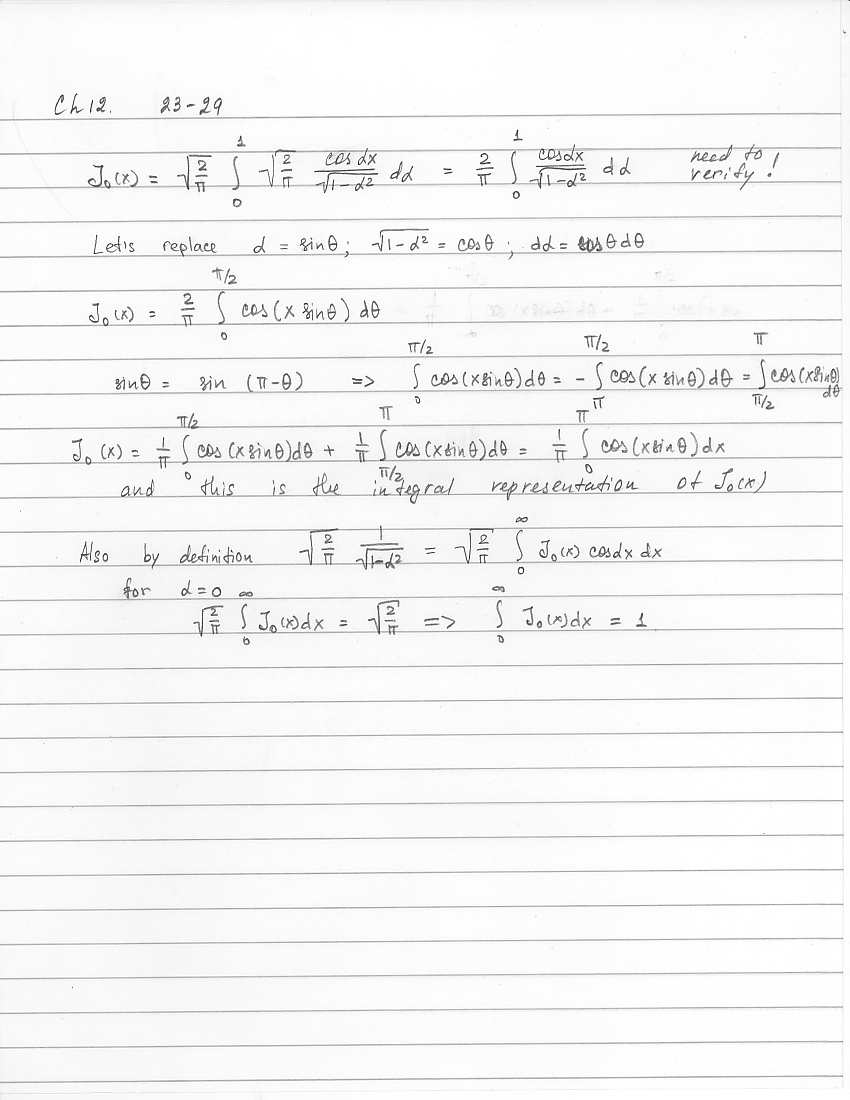 Ch 12. 23-29
J₀(x) = √(2/π) ∫₀¹ √(2/π) cos αx / √(1-α²) dα = 2/π ∫₀¹ cos αx / √(1-α²) dα need to verify!
Let's replace α = sinθ; √(1-α²) = cosθ; dα = cosθdθ
J₀(x) = 2/π ∫₀^(π/2) cos(x sinθ) dθ
sinθ = sin (π-θ) => ∫₀^(π/2) cos(x sinθ)dθ = - ∫_π^(π/2) cos(x sinθ)dθ = ∫_(π/2)^π cos(x sinθ) dθ
J₀(x) = 1/π ∫₀^(π/2) cos(x sinθ)dθ + 1/π ∫_(π/2)^π cos(x sinθ)dθ = 1/π ∫₀^π cos(x sinθ)dx
and this is the integral representation of J₀(x)
Also by definition √(2/π) 1/√(1-α²) = √(2/π) ∫₀^∞ J₀(x) cos αx dx
for α=0
√(2/π) ∫₀^∞ J₀(x)dx = √(2/π) => ∫₀^∞ J₀(x)dx = 1